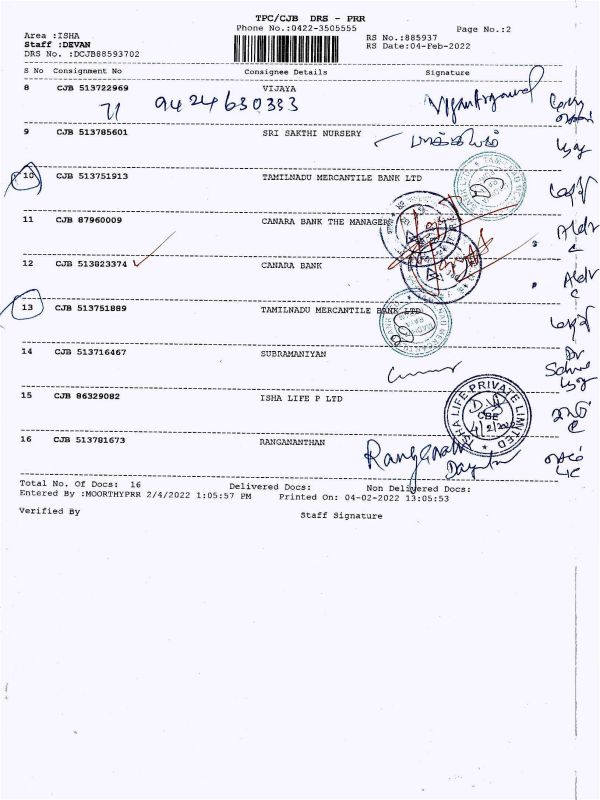 TPC/CJB DRS - PRR
Phone No.:0422-3505555
Page No.:2
Area :ISHA
RS No.:885937
Staff :DEVAN
RS Date:04-Feb-2022
DRS No. :DCJB88593702
S No Consignment No Consignee Details Signature
8 CJB 513722969 VIJAYA
9424630333
9 CJB 513785601 SRI SAKTHI NURSERY
10 CJB 513751913 TAMILNADU MERCANTILE BANK LTD
11 CJB 87960009 CANARA BANK THE MANAGER
12 CJB 513823374 CANARA BANK
13 CJB 513751889 TAMILNADU MERCANTILE BANK LTD
14 CJB 513716467 SUBRAMANIYAN
15 CJB 86329082 ISHA LIFE P LTD
ISHA LIFE PRIVATE LIMITED
CBE
4/2/2022
16 CJB 513781673 RANGANANTHAN
Total No. Of Docs: 16 Delivered Docs: Non Delivered Docs:
Entered By :MOORTHYPRR 2/4/2022 1:05:57 PM Printed On: 04-02-2022 13:05:53
Verified By Staff Signature